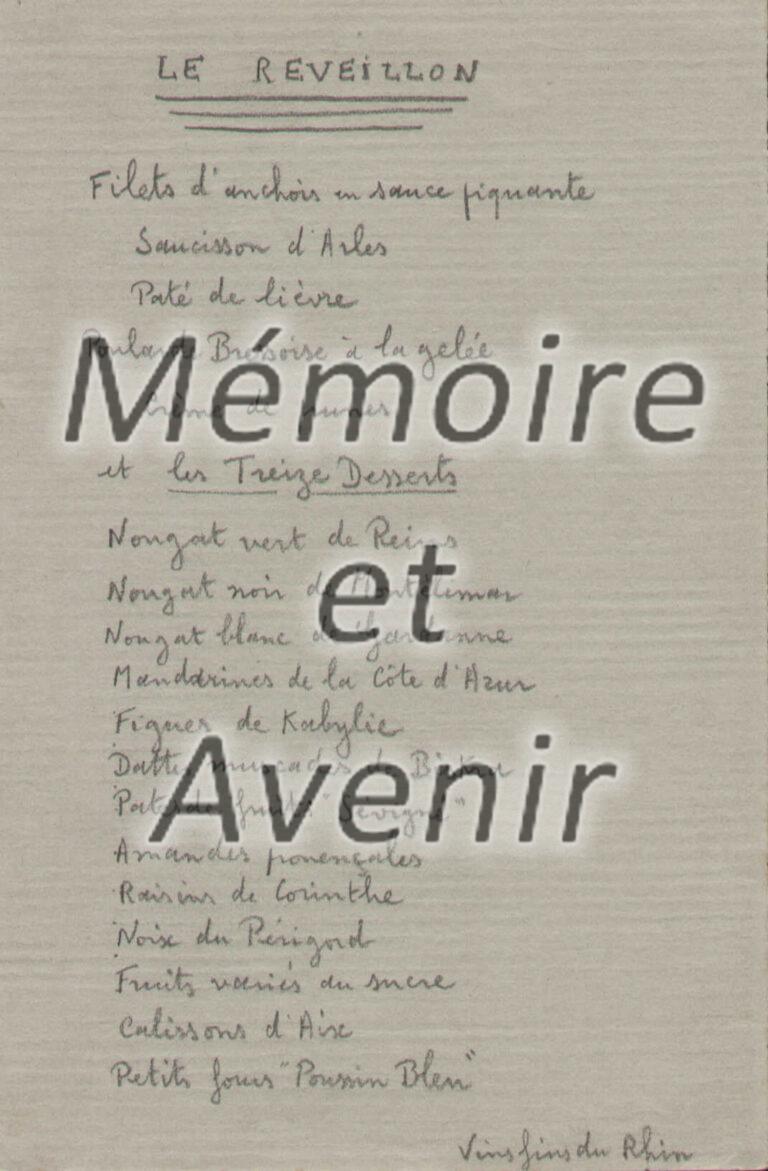 LE REVEILLON
Filets d'anchois en sauce piquante
Saucisson d'Arles
Paté de lièvre
Poularde Bressoise à la gelée
Crème de
et les Treize Desserts
Nougat vert de Reims
Nougat noir de Montélimar
Nougat blanc de Gardanne
Mandarines de la Côte d'Azur
Figues de Kabylie
Dattes muscades de Biskra
Pates de fruits "Sévigné"
Amandes provençales
Raisins de Corinthe
Noix du Périgord
Fruits variés au sucre
Calissons d'Aix
Petits fours "Poussin Bleu"
Vins fins du Rhin
Mémoire
et
Avenir